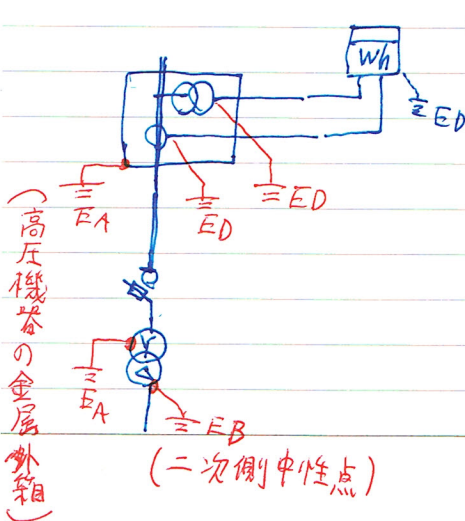 Wh
ED
EA
ED
ED
(高圧機器の金属外箱)
Y
Δ
EA
EB
(二次側中性点)